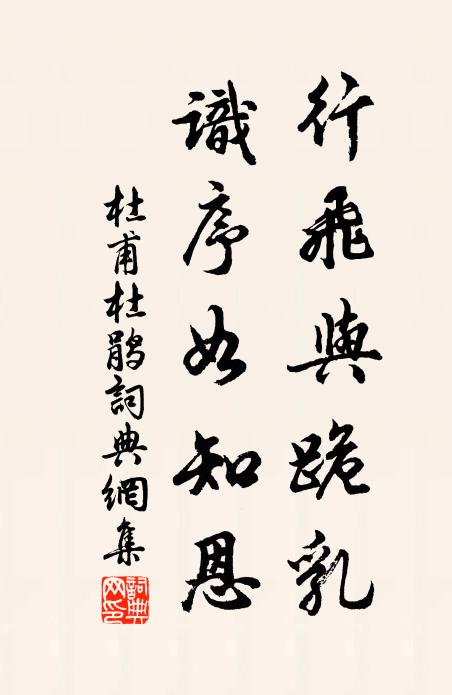 行飛與跪乳
識序如知恩
杜甫杜鵑詞典網集
詞典网印